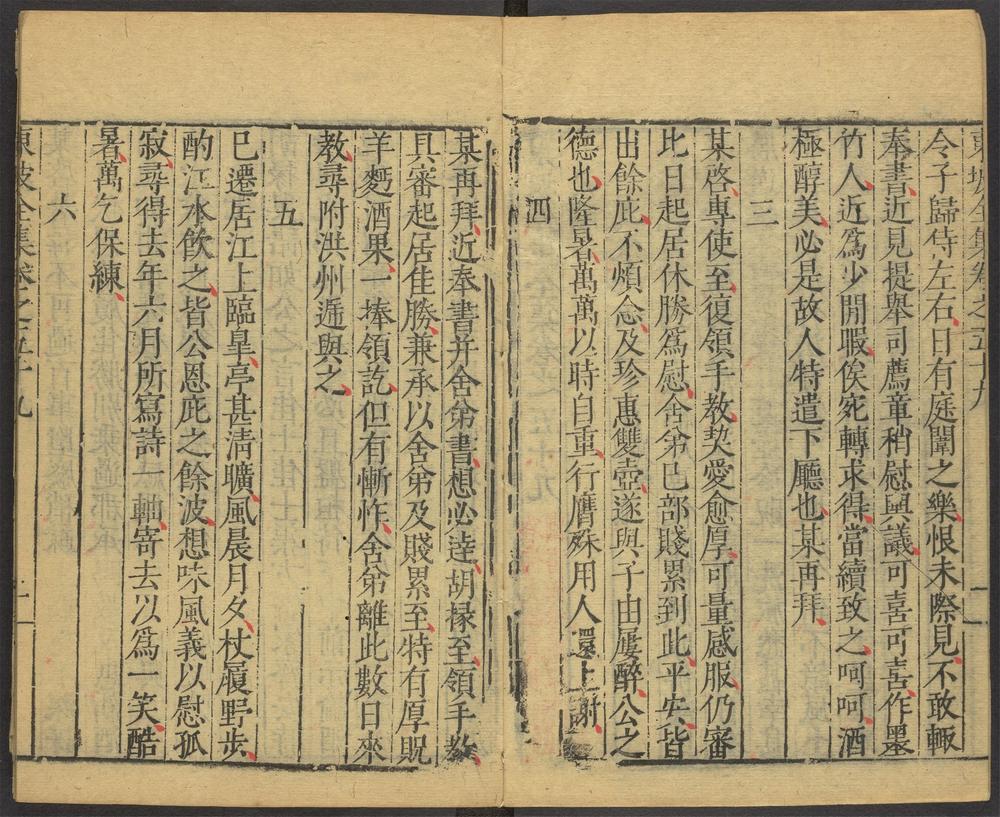 東坡全集卷之五十九
令子歸侍左右日有庭闈之樂恨未際見不敢輙
奉書近見提舉司薦章稍慰輿議可喜可喜作墨
竹人近爲少閒暇俟宛轉求得當續致之呵呵酒
極醇美必是故人特遣下廳也某再拜
三
某啓專使至復領手教契愛愈厚可量感服仍審
比日起居休勝爲慰舍弟已部賤累到此平安皆
出餘庇不煩念及珍惠雙壺遂與子由屢醉公之
德也隆暑萬萬以時自重行膺殊用人還上謝
四
某再拜近奉書并舍弟書想必達胡掾至領手教
具審起居佳勝兼承以舍弟及賤累至特有厚貺
羊麪酒果一捧領訖但有慚怍舍弟離此數日來
教尋附洪州遞與之
五
已遷居江上臨臯亭甚清曠風晨月夕杖履野步
酌江水飲之皆公恩庇之餘波想味風義以慰孤
寂尋得去年六月所寫詩一軸寄去以爲一笑酷
暑萬乞保練
六
東坡全集卷之五十九
二